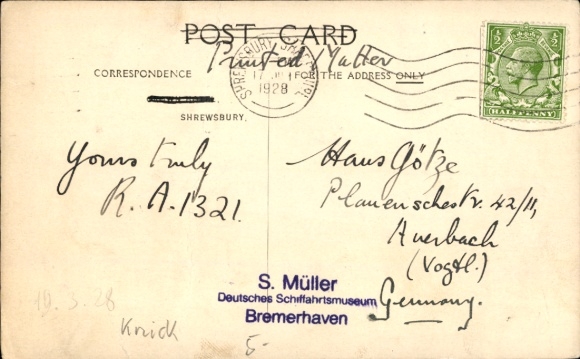 POST CARD
Printed Matter
CORRESPONDENCE
FOR THE ADDRESS ONLY
SHREWSBURY
17
1928
SHREWSBURY.
½
½
HALFPENNY
Yours truly
R. A. 1321.
Hans Götze
Plauenschestr. 42/II,
Auerbach
(Vogtl.)
Germany.
S. Müller
Deutsches Schiffahrtsmuseum
Bremerhaven
10.3.28
Knick
5-